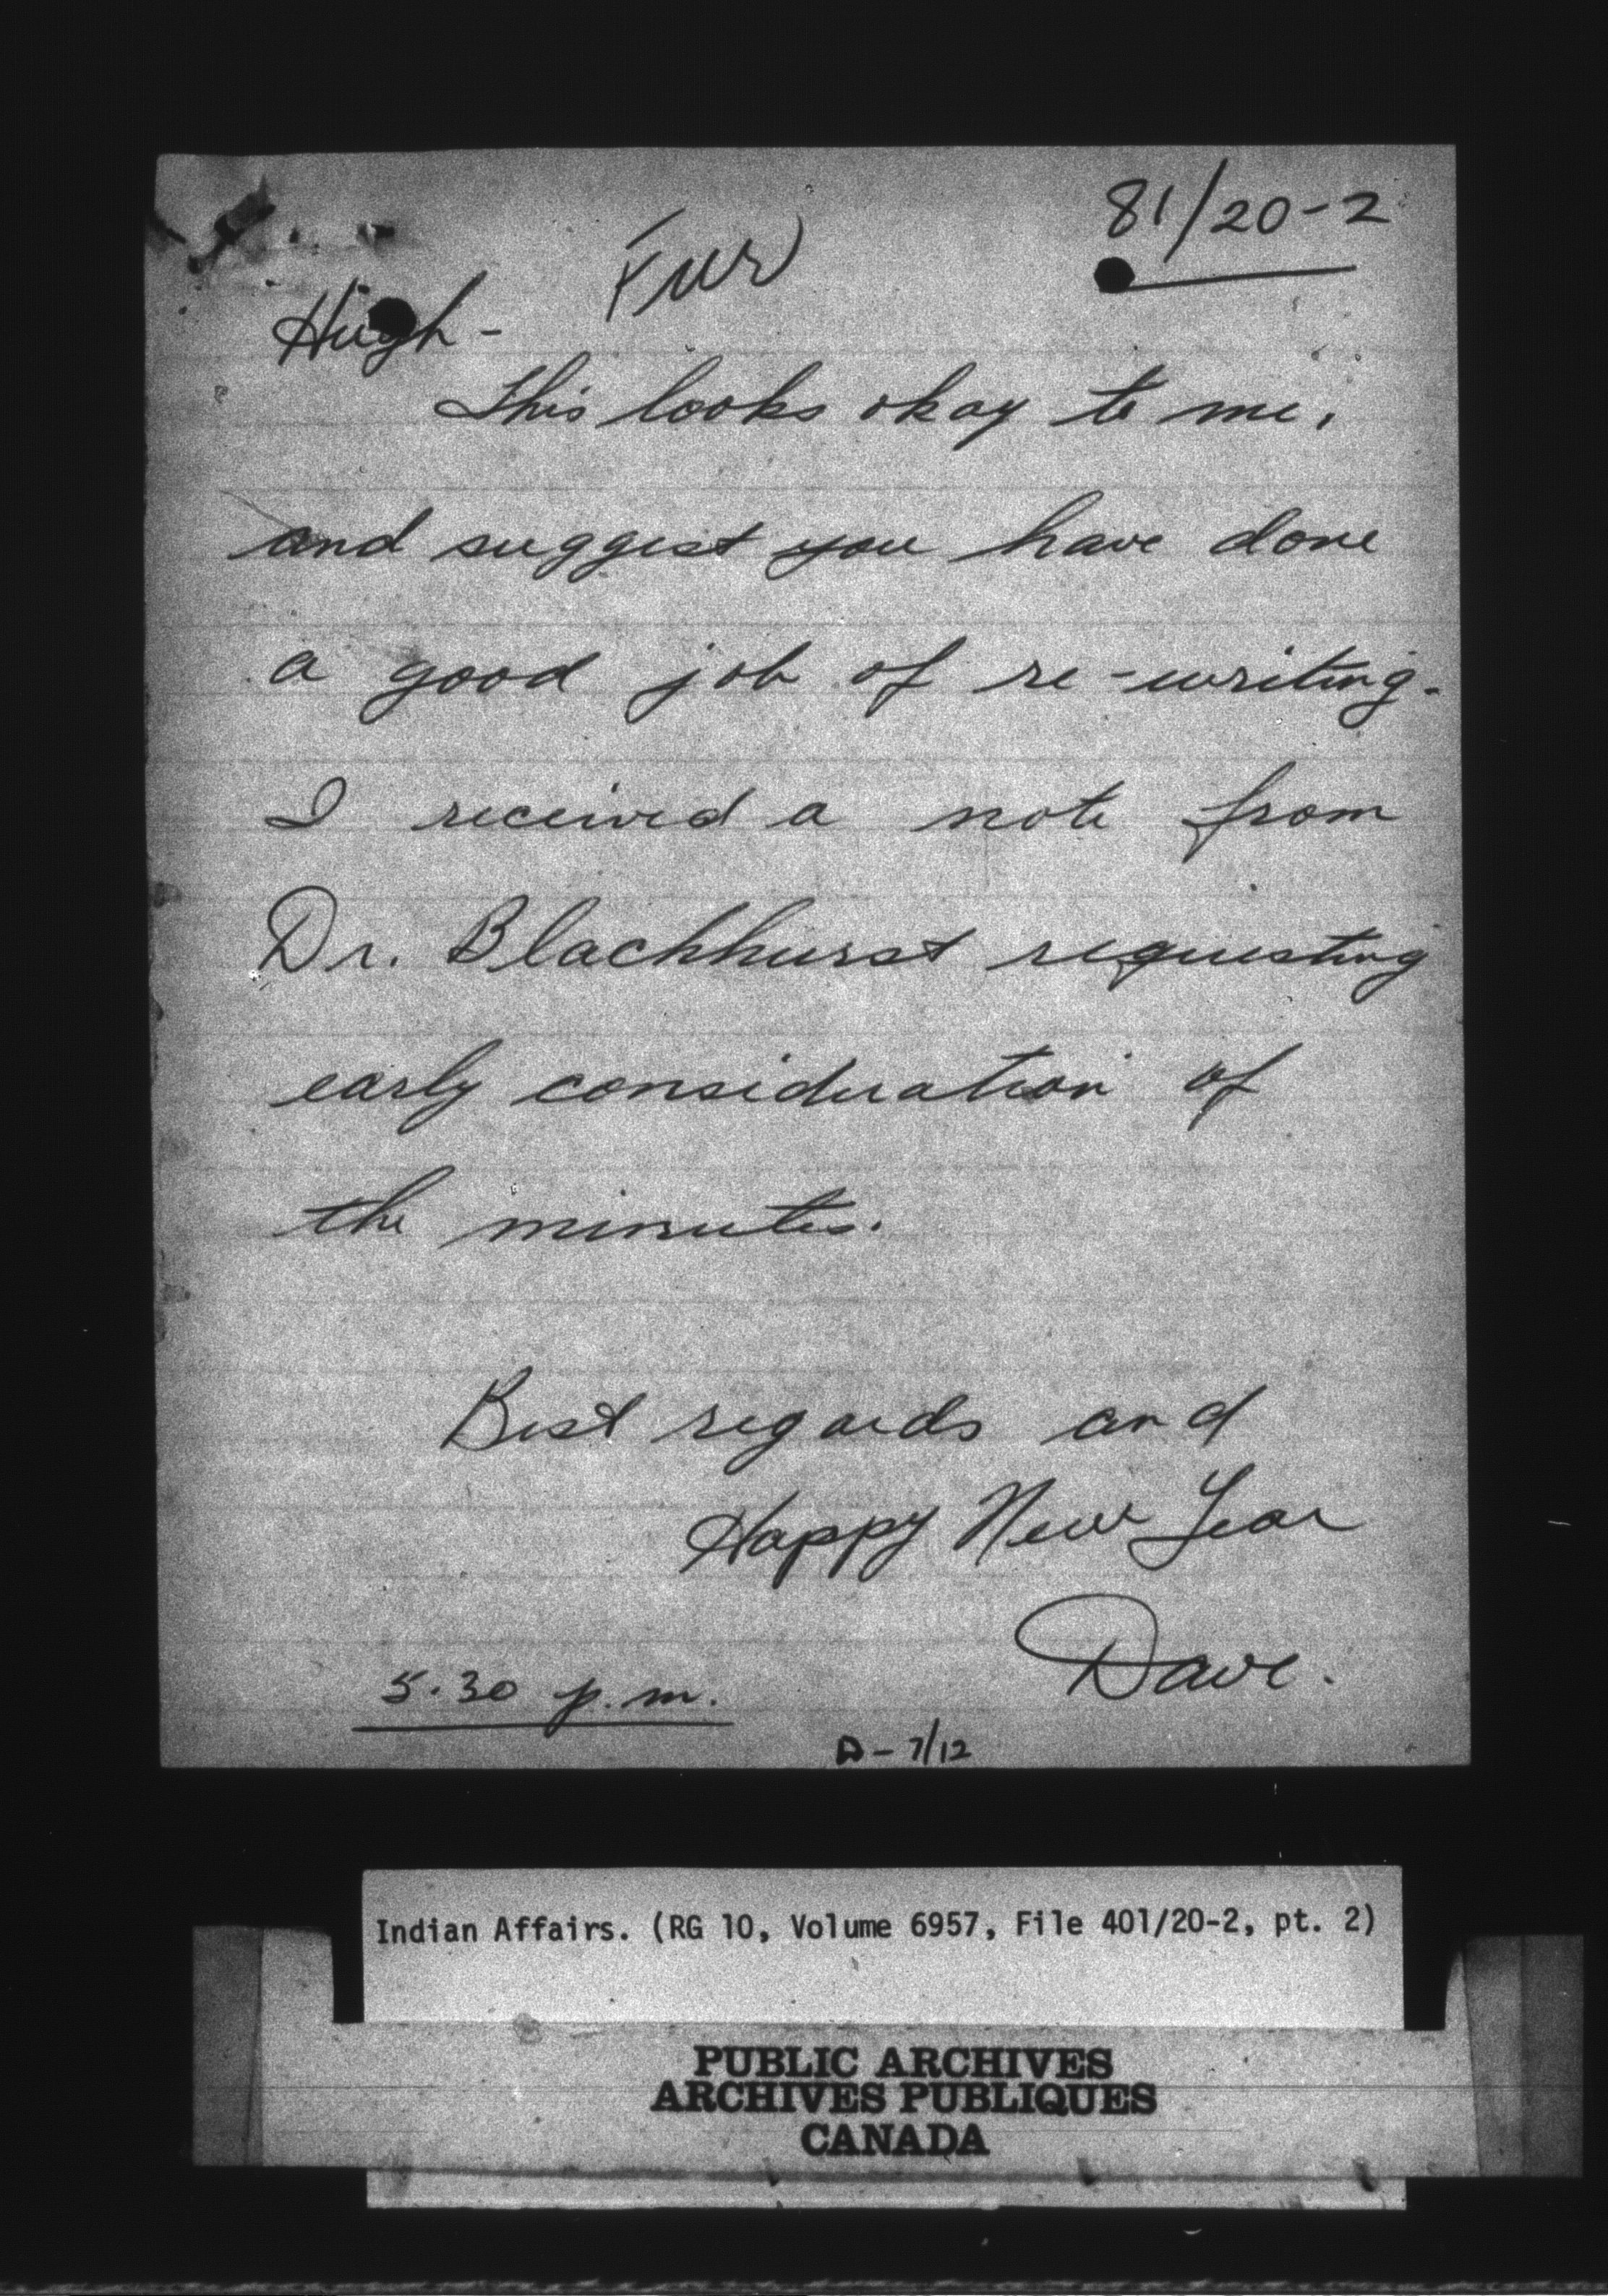 81/20-2
Fur
Hugh -
This looks okay to me,
and suggest you have done
a good job of re-writing.
I received a note from
Dr. Blackhurst requesting
early consideration of
the minutes.
Best regards and
Happy New Year
Dave.
5.30 p.m.
D - 7/12
Indian Affairs. (RG 10, Volume 6957, File 401/20-2, pt. 2)
PUBLIC ARCHIVES
ARCHIVES PUBLIQUES
CANADA